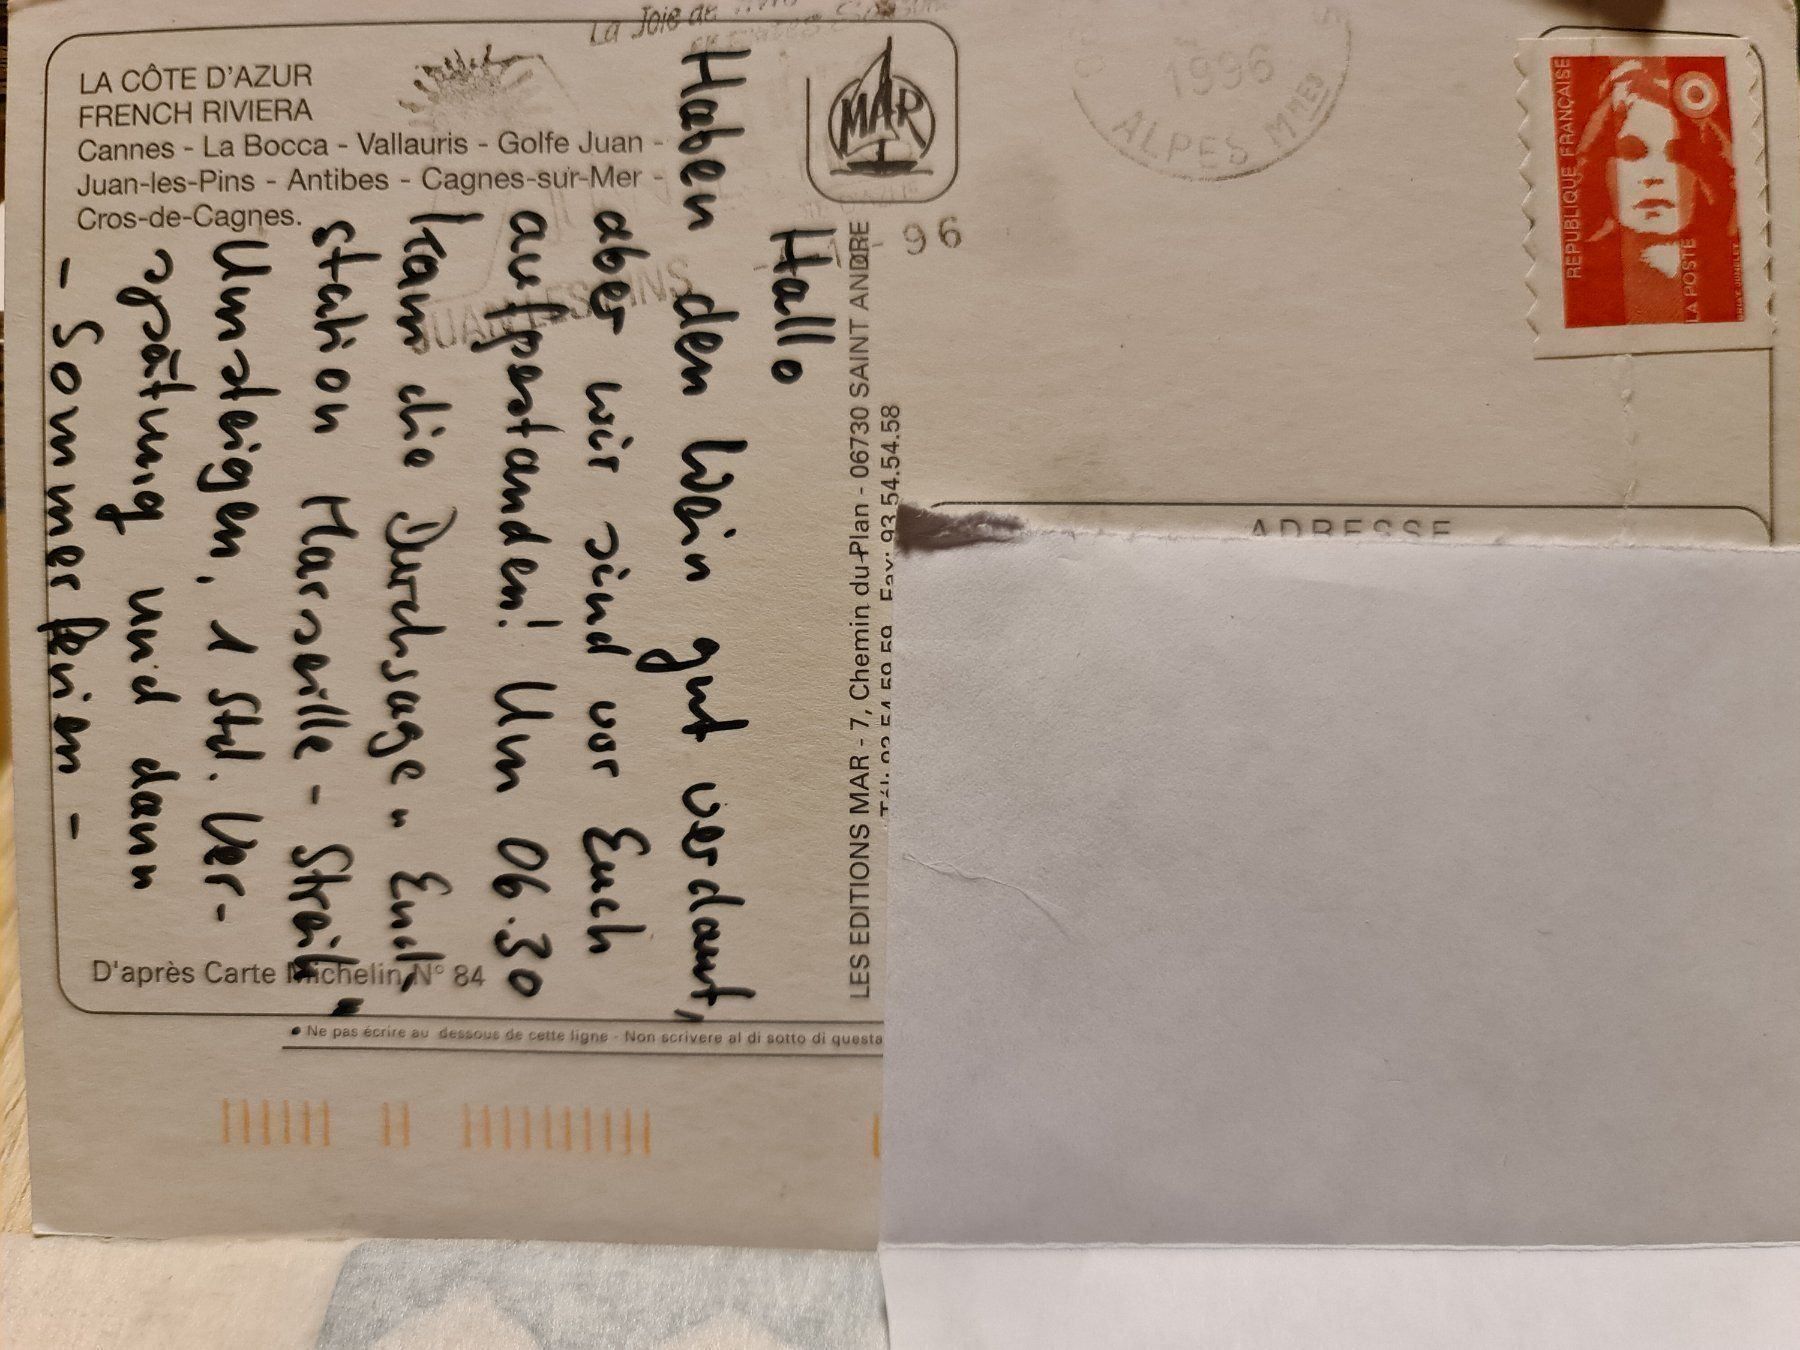 La Joie de
LA CÔTE D'AZUR
FRENCH RIVIERA
Cannes - La Bocca - Vallauris - Golfe Juan -
Juan-les-Pins - Antibes - Cagnes-sur-Mer -
Cros-de-Cagnes.
MAR
JUAN LES PINS
96
1996
ALPES MMES
REPUBLIQUE FRANÇAISE
LA POSTE
Hallo
Haben den Wein gut verdaut,
aber wir sind vor Euch
aufgestanden! Um 06.30
kam die Durchsage "End-
station Marseille - Streik"
Umsteigen, 1 Std. Ver-
spätung und dann
- Sommerferien -
LES EDITIONS MAR - 7, Chemin du Plan - 06730 SAINT ANDRE
Tél: 93 54 59 59 Fax: 93.54.54.58
ADRESSE
D'après Carte Michelin N° 84
• Ne pas écrire au dessous de cette ligne - Non scrivere al di sotto di questa